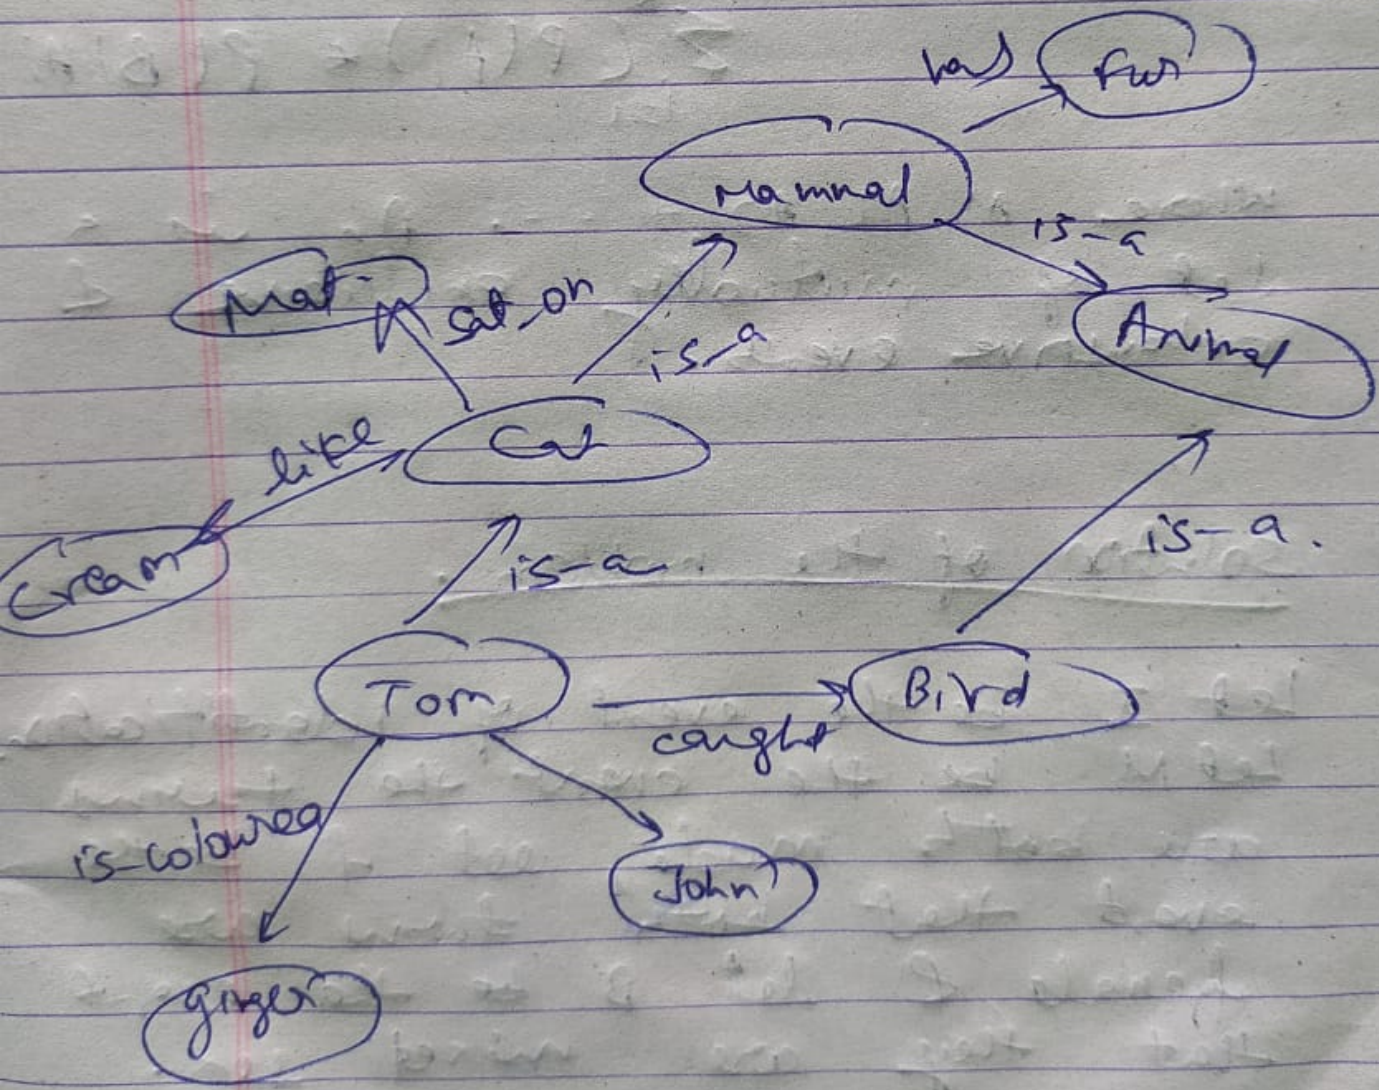 has
Fur
Mammal
is-a
Mat
sat-on
is-a
Animal
like
Cat
Cream
is-a.
is-a.
Tom
caught
Bird
is-coloured
John
ginger